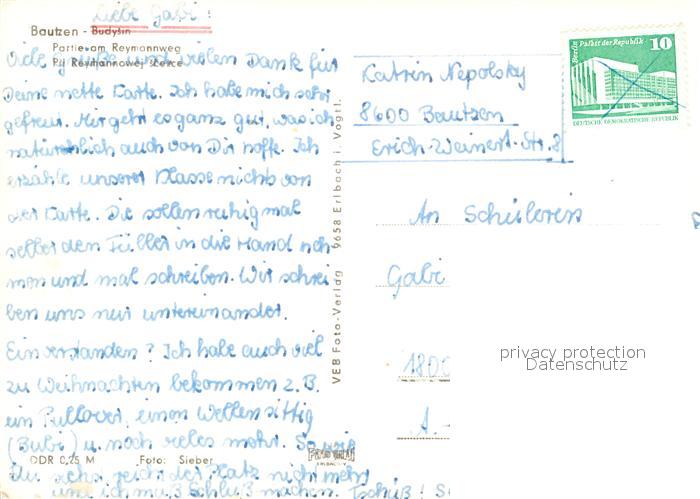 Liebe Gabi!
Bautzen - Budyšin
Partie am Reymannweg
Viele Grüße und vielen Dank für
Deine nette Karte. Ich habe mich sehr
gefreut. Mir geht es ganz gut, was ich
natürlich auch von Dir hoffe. Ich
erzähle unserer Klasse nichts von
der Karte. Die sollen ruhig mal
selber den Füller in die Hand neh-
men und mal schreiben. Wir schrei-
ben uns nur untereinander.
Einverstanden? Ich habe auch viel
zu Weihnachten bekommen z. B.
ein Pullover, einen Wellensittig
(Bubi) u. noch vieles mehr. So wie
DDR 0,25 M Foto: Sieber
Du siehst reicht der Platz nicht mehr
und ich muß Schluß machen. Tschüß!
VEB Foto-Verlag 9658 Erlbach i. Vogtl.
Katrin Nepolsky
8600 Bautzen
Erich-Weinert-Str. 8
Berlin Palast der Republik 10
DEUTSCHE DEMOKRATISCHE REPUBLIK
An Schülerin
Gabi
1800
A.-
privacy protection
Datenschutz